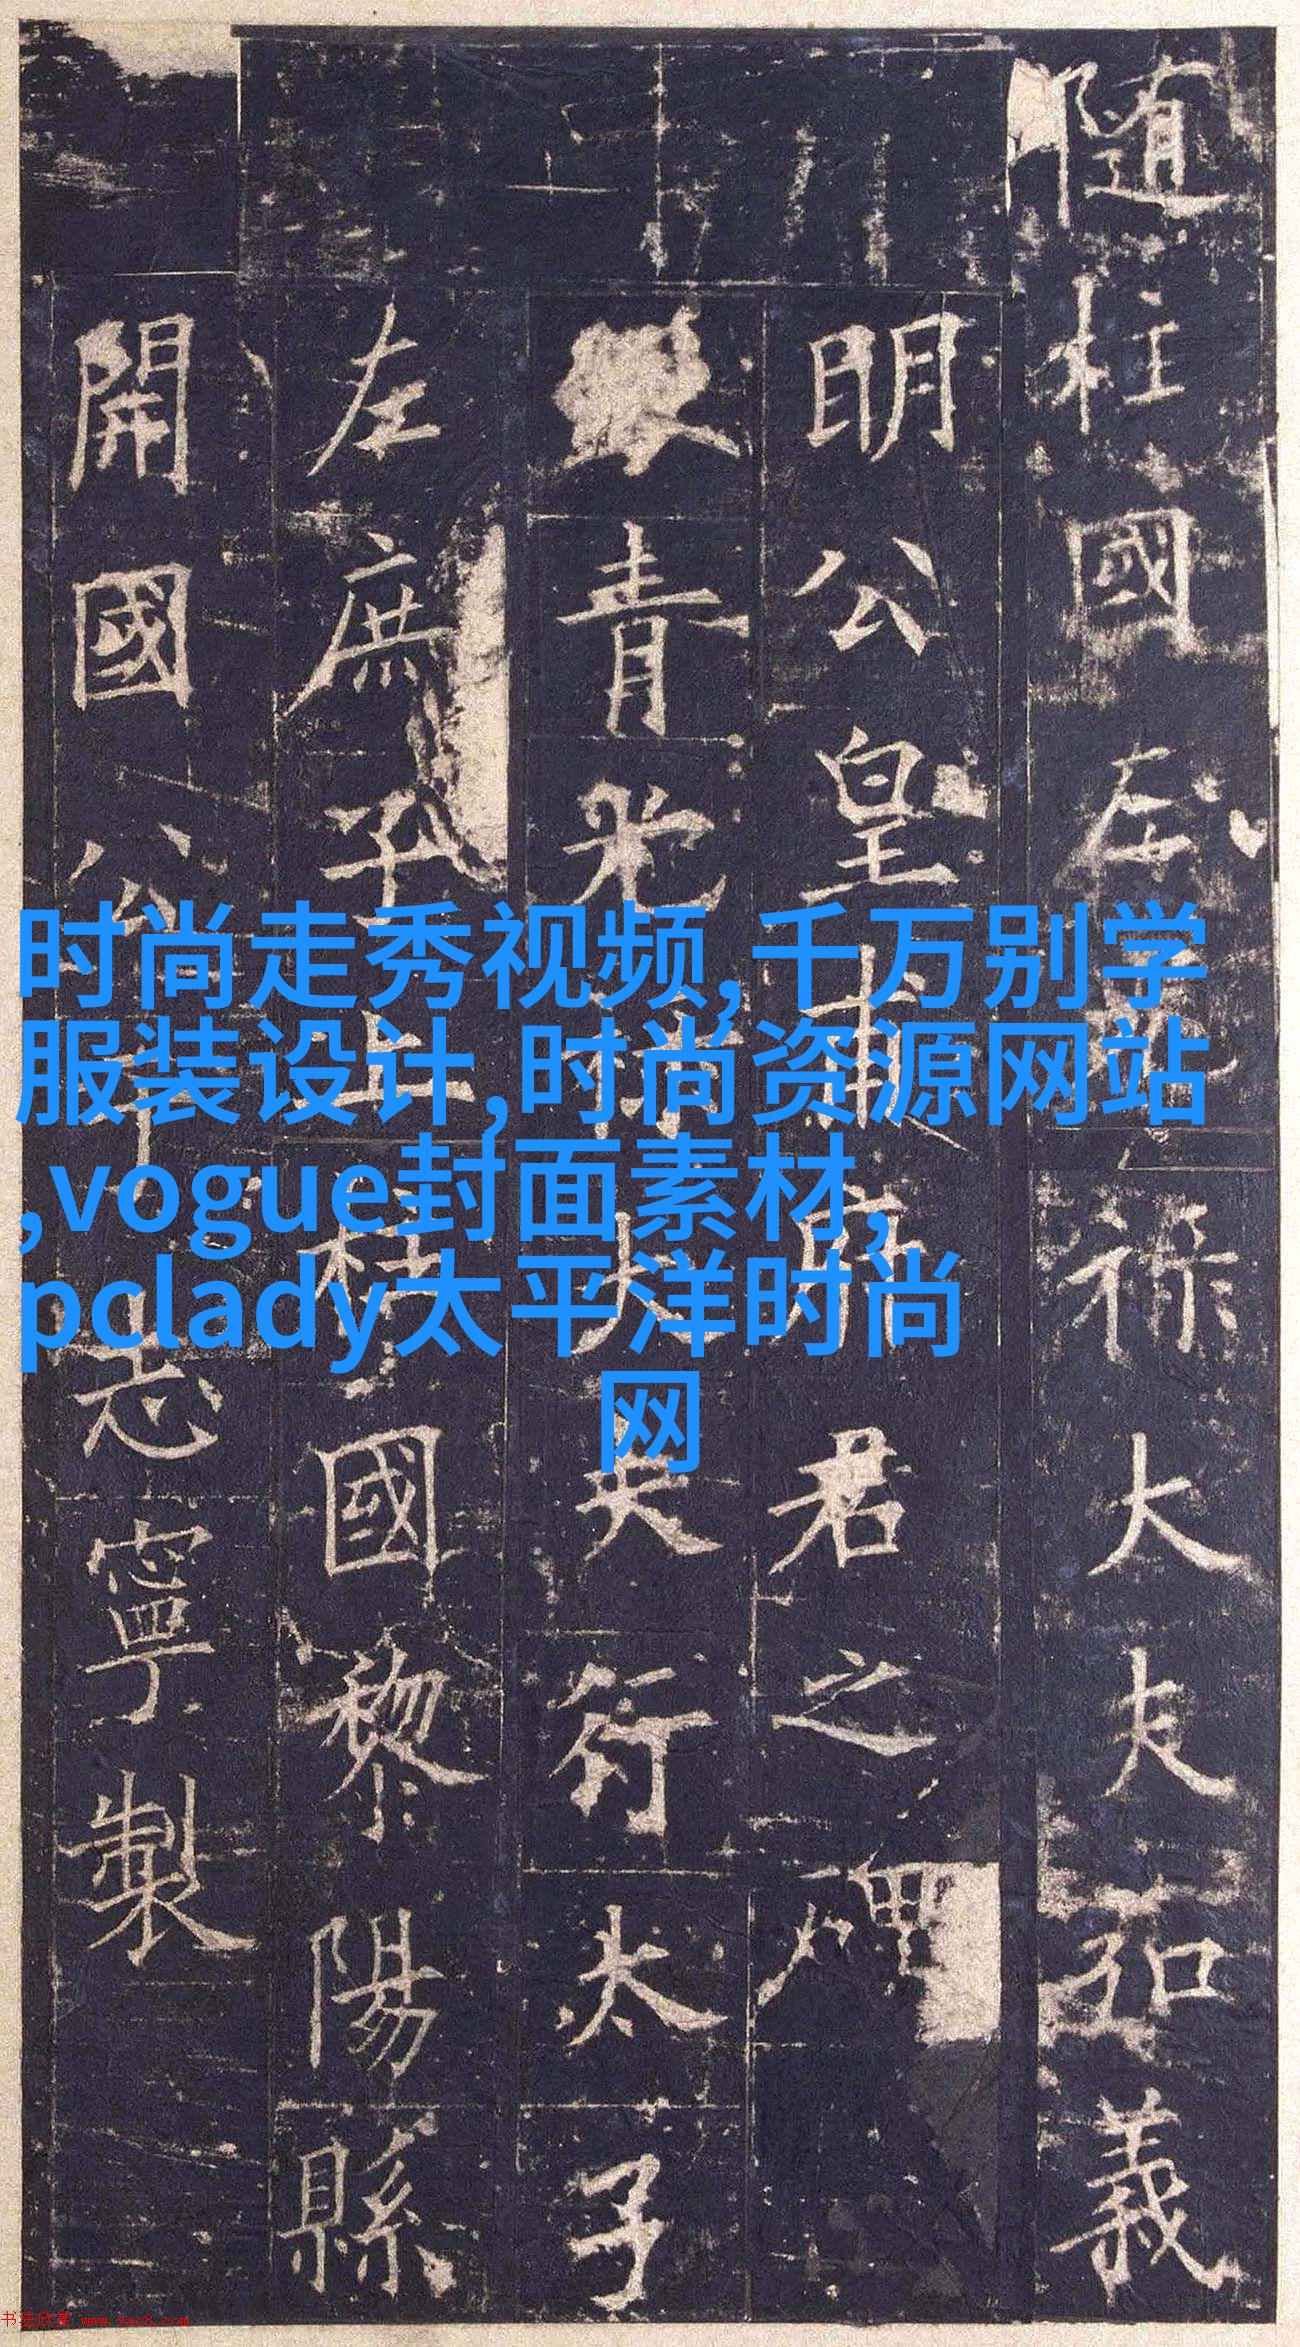 隨柱國左光祿大夫弘義
明公皇甫府君之碑
銀青光祿大夫行太子
左庶子上柱國黎陽縣
開國公于志寧製
时尚走秀视频,千万别学
服装设计,时尚资源网站
,vogue封面素材,
pclady太平洋时尚
网
书法欣赏 www.yac8.com